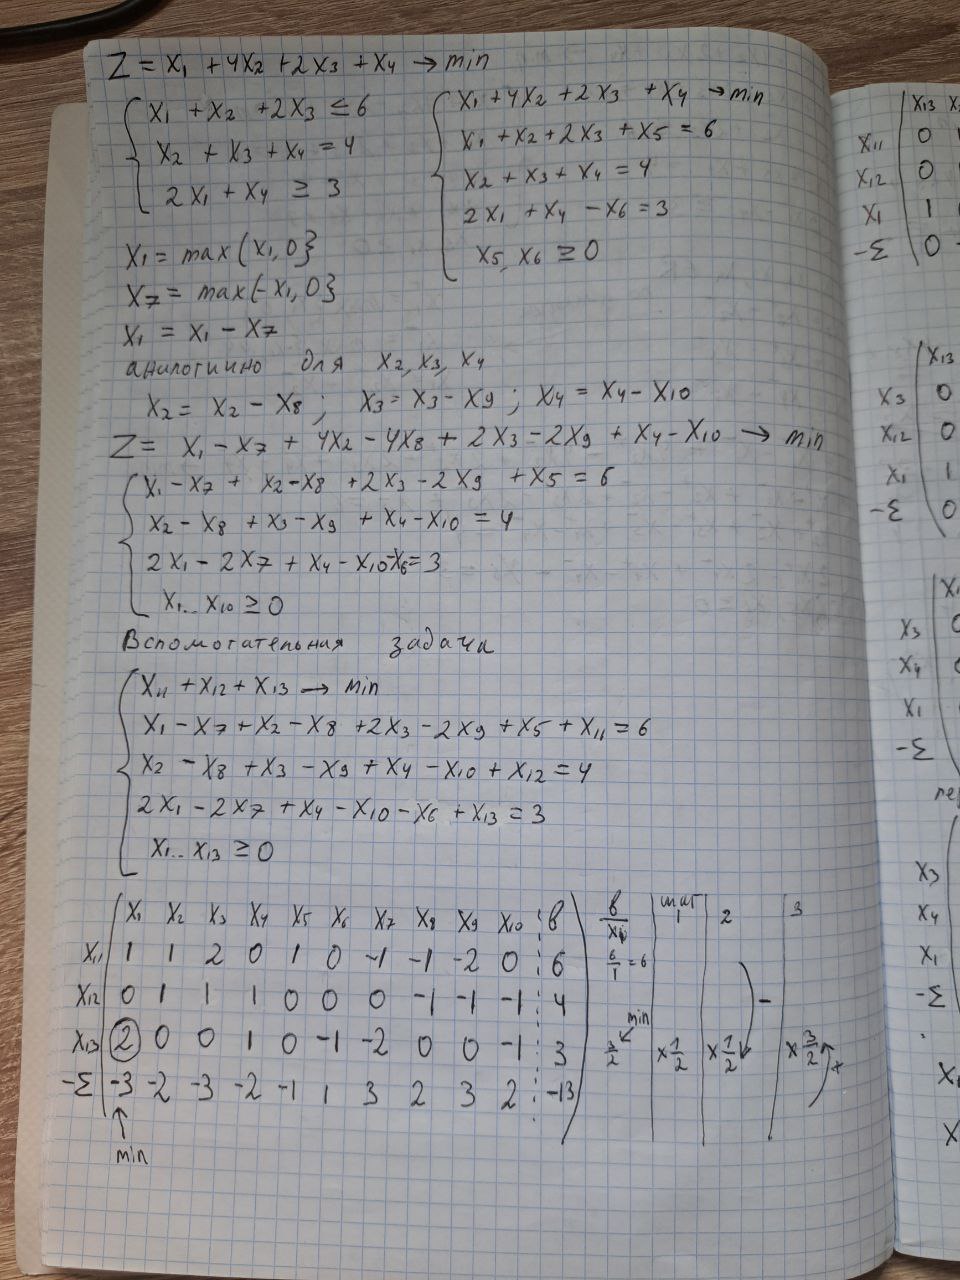 Z = x₁ + 4x₂ + 2x₃ + x₄ → min
x₁ + x₂ + 2x₃ ≤ 6
x₂ + x₃ + x₄ = 4
2x₁ + x₄ ≥ 3
x₁ + 4x₂ + 2x₃ + x₄ → min
x₁ + x₂ + 2x₃ + x₅ = 6
x₂ + x₃ + x₄ = 4
2x₁ + x₄ − x₆ = 3
x₅, x₆ ≥ 0
x₁ = max{x₁, 0}
x₇ = max{-x₁, 0}
x₁ = x₁ − x₇
аналогично для x₂, x₃, x₄
x₂ = x₂ − x₈ ; x₃ = x₃ − x₉ ; x₄ = x₄ − x₁₀
Z = x₁ − x₇ + 4x₂ − 4x₈ + 2x₃ − 2x₉ + x₄ − x₁₀ → min
x₁ − x₇ + x₂ − x₈ + 2x₃ − 2x₉ + x₅ = 6
x₂ − x₈ + x₃ − x₉ + x₄ − x₁₀ = 4
2x₁ − 2x₇ + x₄ − x₁₀ − x₆ = 3
x₁.. x₁₀ ≥ 0
Вспомогательная задача
x₁₁ + x₁₂ + x₁₃ → min
x₁ − x₇ + x₂ − x₈ + 2x₃ − 2x₉ + x₅ + x₁₁ = 6
x₂ − x₈ + x₃ − x₉ + x₄ − x₁₀ + x₁₂ = 4
2x₁ − 2x₇ + x₄ − x₁₀ − x₆ + x₁₃ = 3
x₁.. x₁₃ ≥ 0
x₁ x₂ x₃ x₄ x₅ x₆ x₇ x₈ x₉ x₁₀ b b/xᵢ шаг 1 2 3
x₁₁ 1 1 2 0 1 0 -1 -1 -2 0 6 6/1 = 6
x₁₂ 0 1 1 1 0 0 0 -1 -1 -1 4 −
min
x₁₃ 2 0 0 1 0 -1 -2 0 0 -1 3 3/2 ×1/2 ×1/2 ×3/2 +
-Σ -3 -2 -3 -2 -1 1 3 2 3 2 -13
min
x₁₃
x₁₁ 0
x₁₂ 0
x₁ 1
-Σ 0
x₁₃
x₃ 0
x₁₂ 0
x₁ 1
-Σ 0
x₃
x₄
x₁
-Σ
x₃
x₄
x₁
-Σ